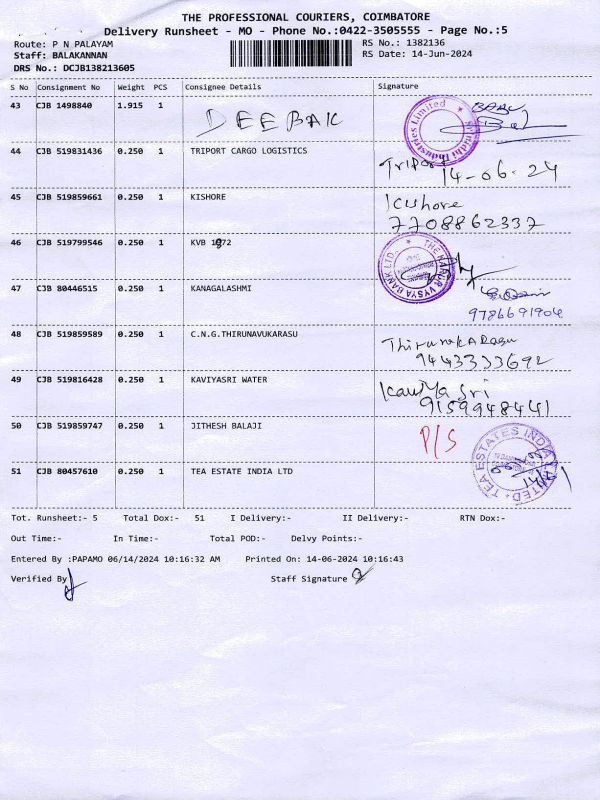 THE PROFESSIONAL COURIERS, COIMBATORE
Delivery Runsheet - MO - Phone No.:0422-3505555 - Page No.:5
Route: P N PALAYAM
Staff: BALAKANNAN
DRS No.: DCJB138213605
RS No.: 1382136
RS Date: 14-Jun-2024
S No Consignment No Weight PCS Consignee Details Signature
43 CJB 1498840 1.915 1 DEEBAK
Industries Limited
44 CJB 519831436 0.250 1 TRIPORT CARGO LOGISTICS Triport
14-06-24
45 CJB 519859661 0.250 1 KISHORE Kishore
7708862337
46 CJB 519799546 0.250 1 KVB 1972
THE KARUR VYSYA BANK LTD.
47 CJB 80446515 0.250 1 KANAGALASHMI
9786691904
48 CJB 519859589 0.250 1 C.N.G.THIRUNAVUKARASU
9443333692
49 CJB 519816428 0.250 1 KAVIYASRI WATER KaviyaSri
9159948441
50 CJB 519859747 0.250 1 JITHESH BALAJI P/S
51 CJB 80457610 0.250 1 TEA ESTATE INDIA LTD
TEA ESTATES INDIA LIMITED
Tot. Runsheet:- 5 Total Dox:- 51 I Delivery:- II Delivery:- RTN Dox:-
Out Time:- In Time:- Total POD:- Delvy Points:-
Entered By :PAPAMO 06/14/2024 10:16:32 AM Printed On: 14-06-2024 10:16:43
Verified By Staff Signature